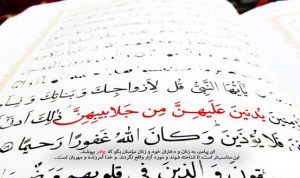 يَٰٓأَيُّهَا النَّبِيُّ قُل لِّأَزْوَاجِكَ وَبَنَاتِكَ
يُدْنِينَ عَلَيْهِنَّ مِن جَلَابِيبِهِنَّ ذَٰلِكَ
فَلَا يُؤْذَيْنَ وَكَانَ اللَّهُ غَفُورًا رَّحِيمًا
ای پیامبر، به زنان و دختران خود و زنان مؤمنان بگو که چادر بپوشند...
این مناسب‌تر است، تا شناخته شوند و مورد آزار واقع نگردند. و خدا آمرزنده و مهربان است...
وَالَّذِينَ فِي قُلُوبِهِم